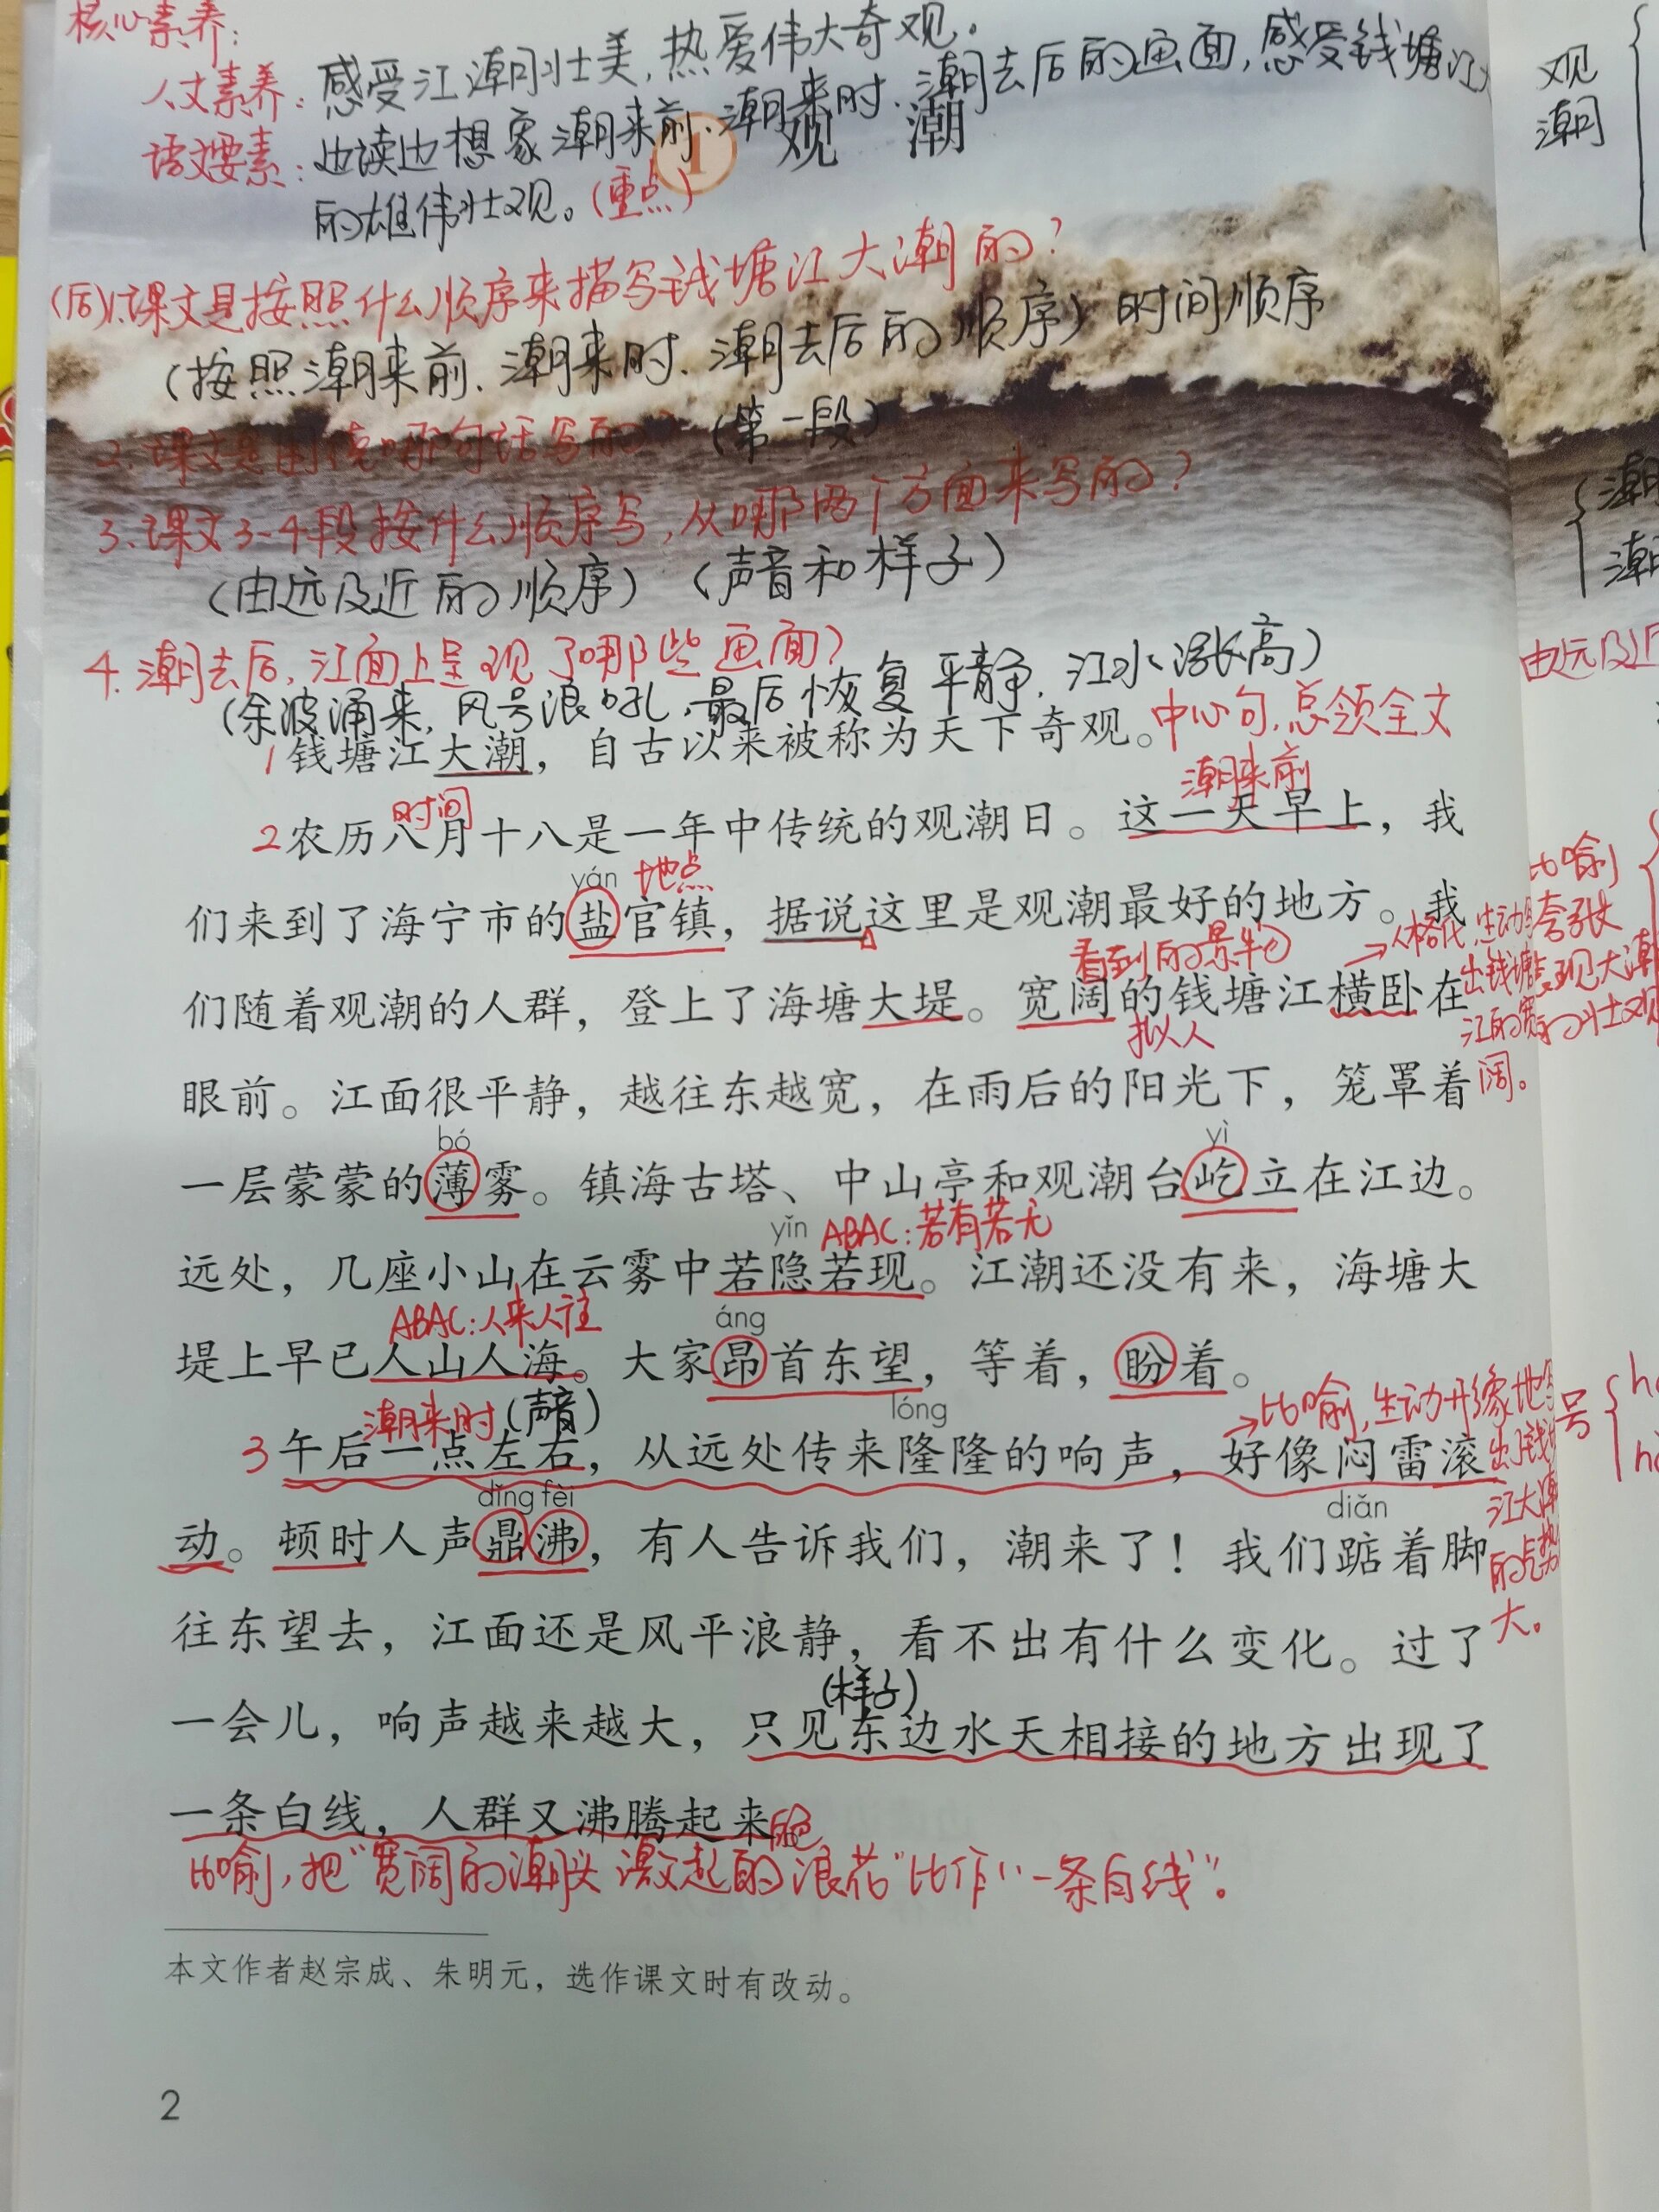 核心素养：
人文素养：感受江潮壮美，热爱伟大奇观。
语文要素：边读边想象潮来前、潮来时、潮去后的画面，感受钱塘江
的雄伟壮观。（重点）
1 观潮
（后）1.课文是按照什么顺序来描写钱塘江大潮的？
（按照潮来前、潮来时、潮去后的顺序）时间顺序
2.课文是围绕哪句话写的 （第一段）
3.课文3-4段按什么顺序写，从哪两个方面来写的？
（由远及近的顺序）（声音和样子）
4.潮去后，江面上呈现了哪些画面？
（余波涌来，风号浪吼，最后恢复平静，江水涨高）
1钱塘江大潮，自古以来被称为天下奇观。中心句，总领全文
时间 潮来前
2农历八月十八是一年中传统的观潮日。这一天早上，我
yán 地点
们来到了海宁市的盐官镇，据说这里是观潮最好的地方。我
看到的景色 →人格化，生动
们随着观潮的人群，登上了海塘大堤。宽阔的钱塘江横卧在
拟人
眼前。江面很平静，越往东越宽，在雨后的阳光下，笼罩着
出钱塘
江的宽
阔。
bó yì
一层蒙蒙的薄雾。镇海古塔、中山亭和观潮台屹立在江边。
yǐn ABAC：若有若无
远处，几座小山在云雾中若隐若现。江潮还没有来，海塘大
ABAC：人来人往 áng
堤上早已人山人海。大家昂首东望，等着，盼着。
潮来时（声音） lóng →比喻，生动形象地
3午后一点左右，从远处传来隆隆的响声，好像闷雷滚
出钱
江大潮
的气势
大。
dǐng fèi diǎn
动。顿时人声鼎沸，有人告诉我们，潮来了！我们踮着脚
往东望去，江面还是风平浪静，看不出有什么变化。过了
（样子）
一会儿，响声越来越大，只见东边水天相接的地方出现了
一条白线，人群又沸腾起来
比喻，把“宽阔的潮头激起的浪花”比作“一条白线”。
本文作者赵宗成、朱明元，选作课文时有改动。
2
观潮
由远及近
比喻
夸张
现大潮
的壮观
号